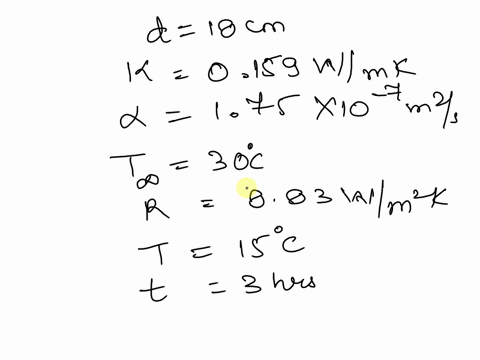 d = 10 cm
K = 0.159 W/mK
α = 1.75 × 10⁻⁷ m²/s
T∞ = 30°C
R = 8.83 W/m²K
T = 15°C
t = 3 hrs